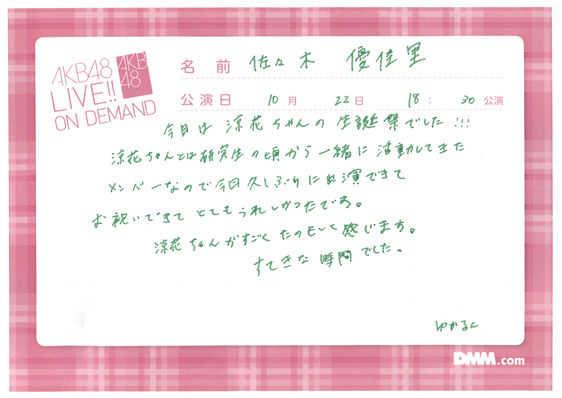 AKB48
LIVE!!
ON DEMAND
AKB
48
名前 佐々木 優佳里
公演日 10月 22日 18:30公演
今日は 涼花ちゃんの 生誕祭でした!!!
涼花ちゃんとは研究生の頃から一緒に活動してきた
メンバーなので今日久しぶりに出演できて
お祝いできて とてもうれしかったです。
涼花ちゃんがすごく たのもしく 感じます。
すてきな 時間でした。
ゆかるん
DMM.com